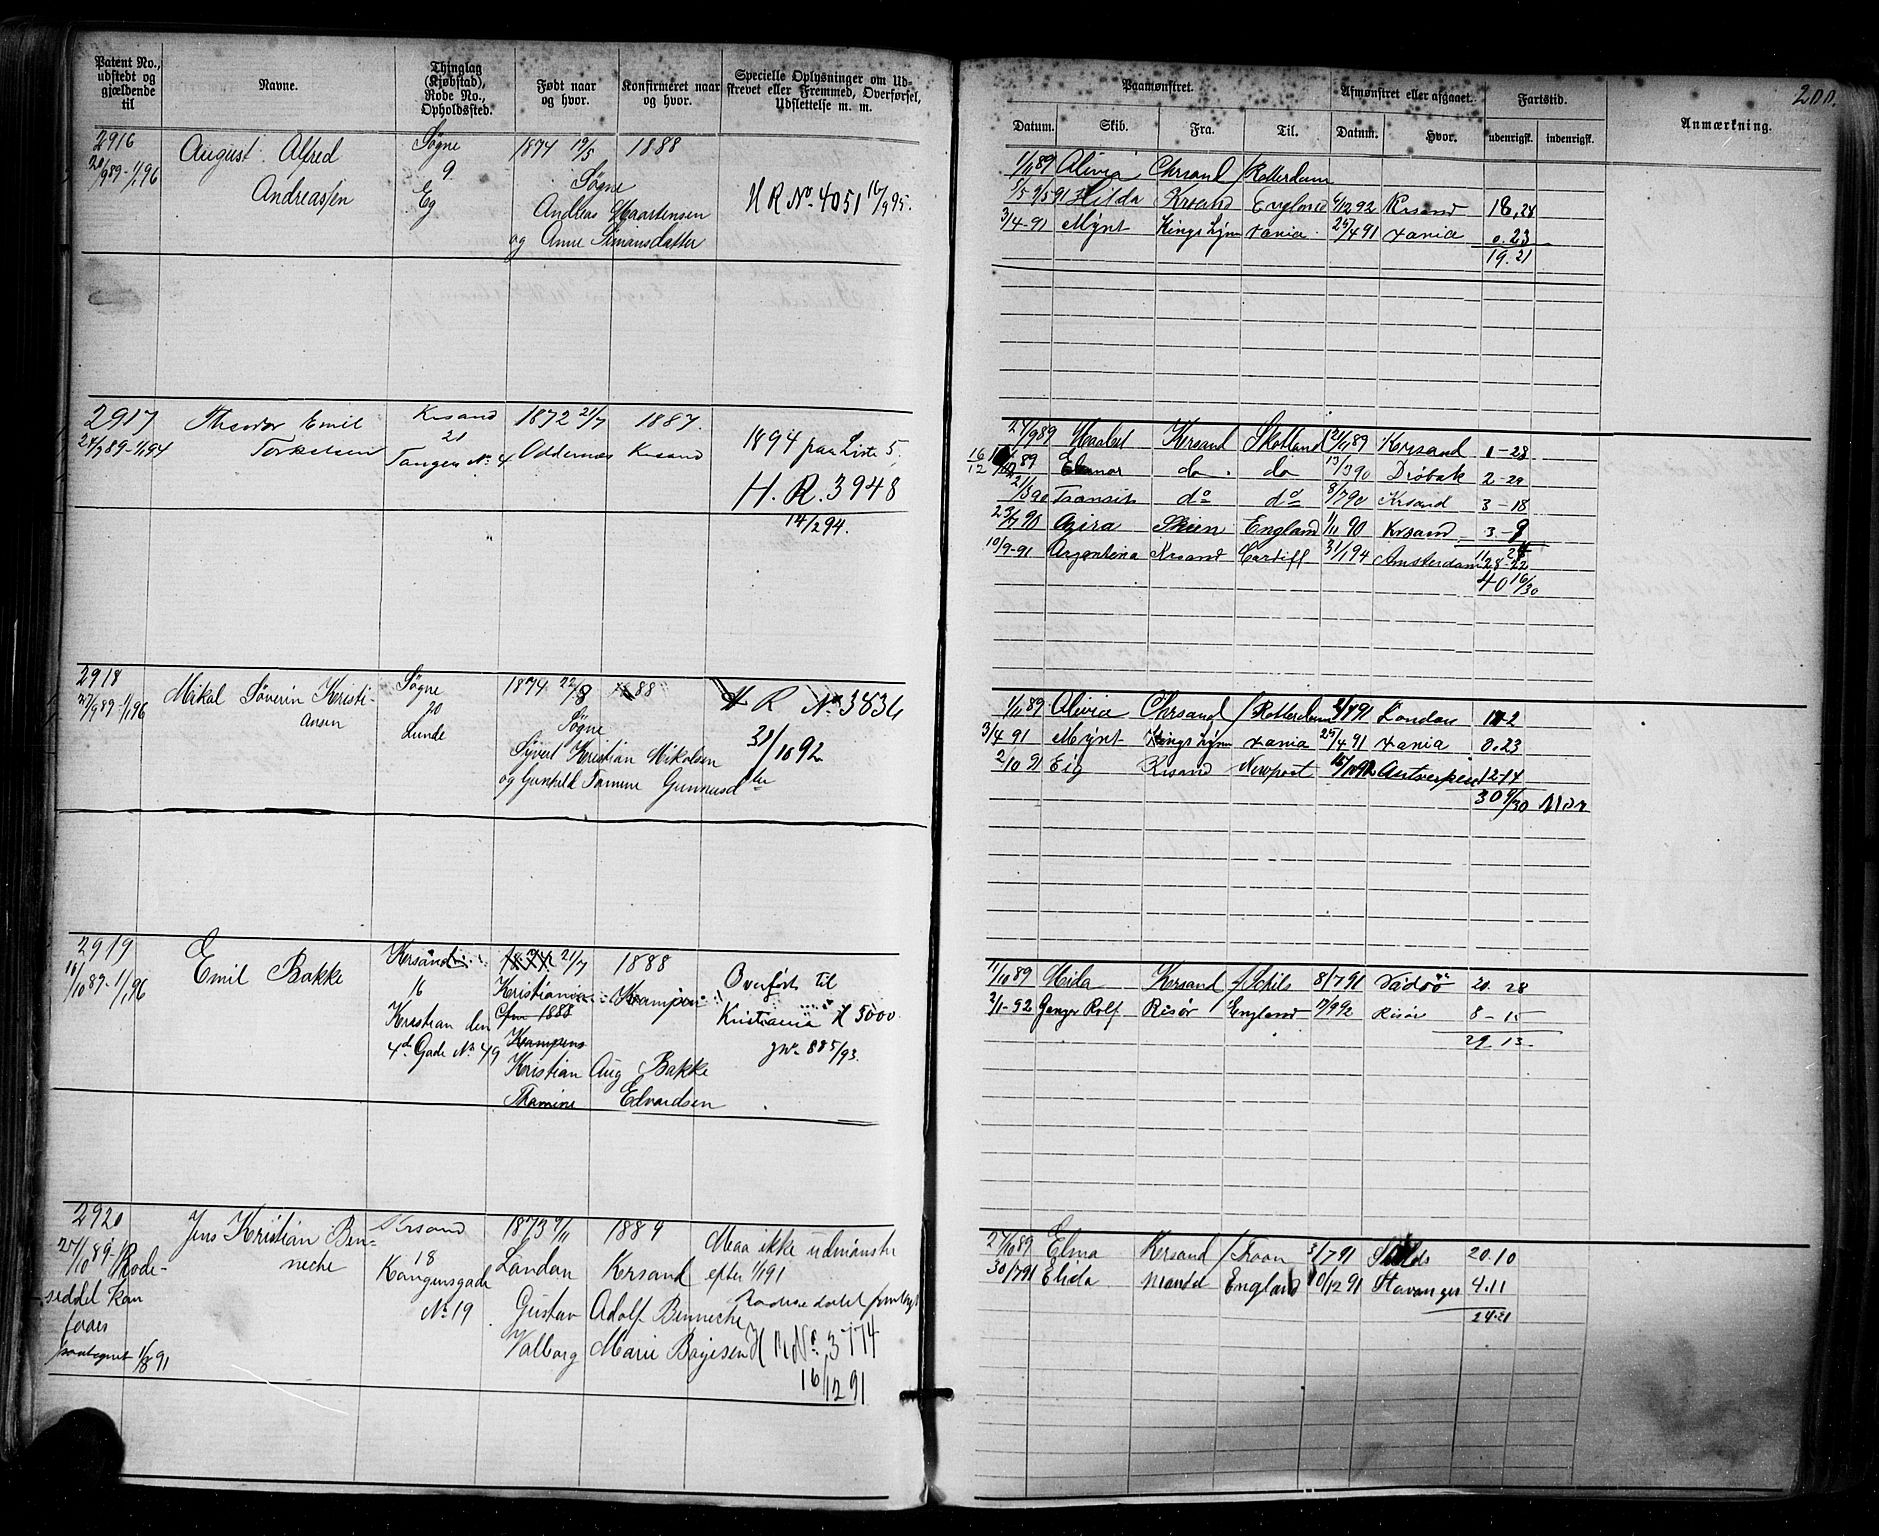 Patent No., udstedt og gjældende til
Navne.
Thinglag (Kjøbstad), Rode No., Opholdssted.
Født naar og hvor.
Konfirmeret naar og hvor.
Specielle Oplysninger om Udskrevet eller Fremmed, Overførsel, Udslettelse m. m.
Paamønstret.
Afmønstret eller afgaaet.
Fartstid.
Anmærkning.
200.
Datum.
Skib.
Fra.
Til.
Datum.
Hvor.
udenrigsk.
indenrigsk.
2916
20/9 89 - 1/1 96
August Alfred
Andreassen
Søgne
9
Eg
1874 19/5
1888
Søgne
Andreas Maartensen
og Anne Simonsdatter
H R No. 4051 16/9 95.
1/11 89 Alivia Chrsand / Rotterdam
Hilda Krsand England 6/12 92 Krsand 18.28
3/4-91 Mynt Kings Lynn xania 25/4 91 xania 0.23
19.21
2917
24/9 89-1/1 94
Theodor Emil
Torkelsen
Krsand
21
Tangen No. 4
1872 21/7
Oddernæs
1887.
Krsand
1894 paa Liste 5,
H. R. 3948
14/2 94.
27/9 89 Krsand Skotland 21/11 89 Krsand 1-28
16/12 89 do. do 13/3 90 Drøbak 2-29
21/3 90 Transit do do 8/7 90 Krsand 3-18
23/7 90 Azira Skien England 1/11 90 Krsand 3-9
10/9-91 Argentina Krsand Cardiff 31/1 94 Amsterdam 28-22
40 16/30
2918
27/9 89-1/1 96
Mikal Søverin Kristi-
ansen
Søgne
20
Lunde
1874 22/8
88
Søgne
Syvert Kristian Mikalsen
og Gunhild Tomine Gunnusdtr
H R No. 3836
31/10 92
1/11 89 Alivia Chrsand / Rotterdam 91 London 2
3/4 91 Mynt Kings Lynn xania 25/4 91 xania 0.23
2/10 91 Eig Krsand Newport Antverpen
30 9/30
2919
10/10 89-1/1 96
Emil Bakke
Krsand
16
Kristian den
4de Gade No. 49
21/7
Kristiania
1888
Kristian Aug Bakke
Thamine Edvardsen
Overført til
Kristiania H 5000
jnr. 885/93.
11/10 89 Krsand 8/7 91 Vadsø 20. 28
2/1-92 Ganger Rolf Risør England Risør 8-15
29. 13
2920
27/10 89
Rode-
seddel kan
faaes
Jens Kristian Ben-
neche
Krsand
18
Kongensgade
No. 19
1873 9/11
London
1889
Krsand
Gustav Adolf Benneche
Valborg Marie Boyesen
Maa ikke udmønstre
efter 1/1 91
H R No. 3774
16/12 91
27/10 89 Elma Krsand 3/7 91 20.10
30/7 91 Elida Mandal England 10/12 91 Stavanger 4.11
24.21